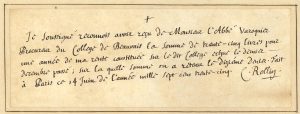 Je soussigné reconnois avoir reçu de Monsieur l'Abbé
Procureur du College de Beauvais la somme de trente-cinq livres pour
une année de ma rente constituée sur le dit College echue le dernier
decembre passé; sur la quelle somme on a retenu le dixième denier. Fait
à Paris ce 14 Juin de l'année mille sept cens trente-cinq. C. Rollin